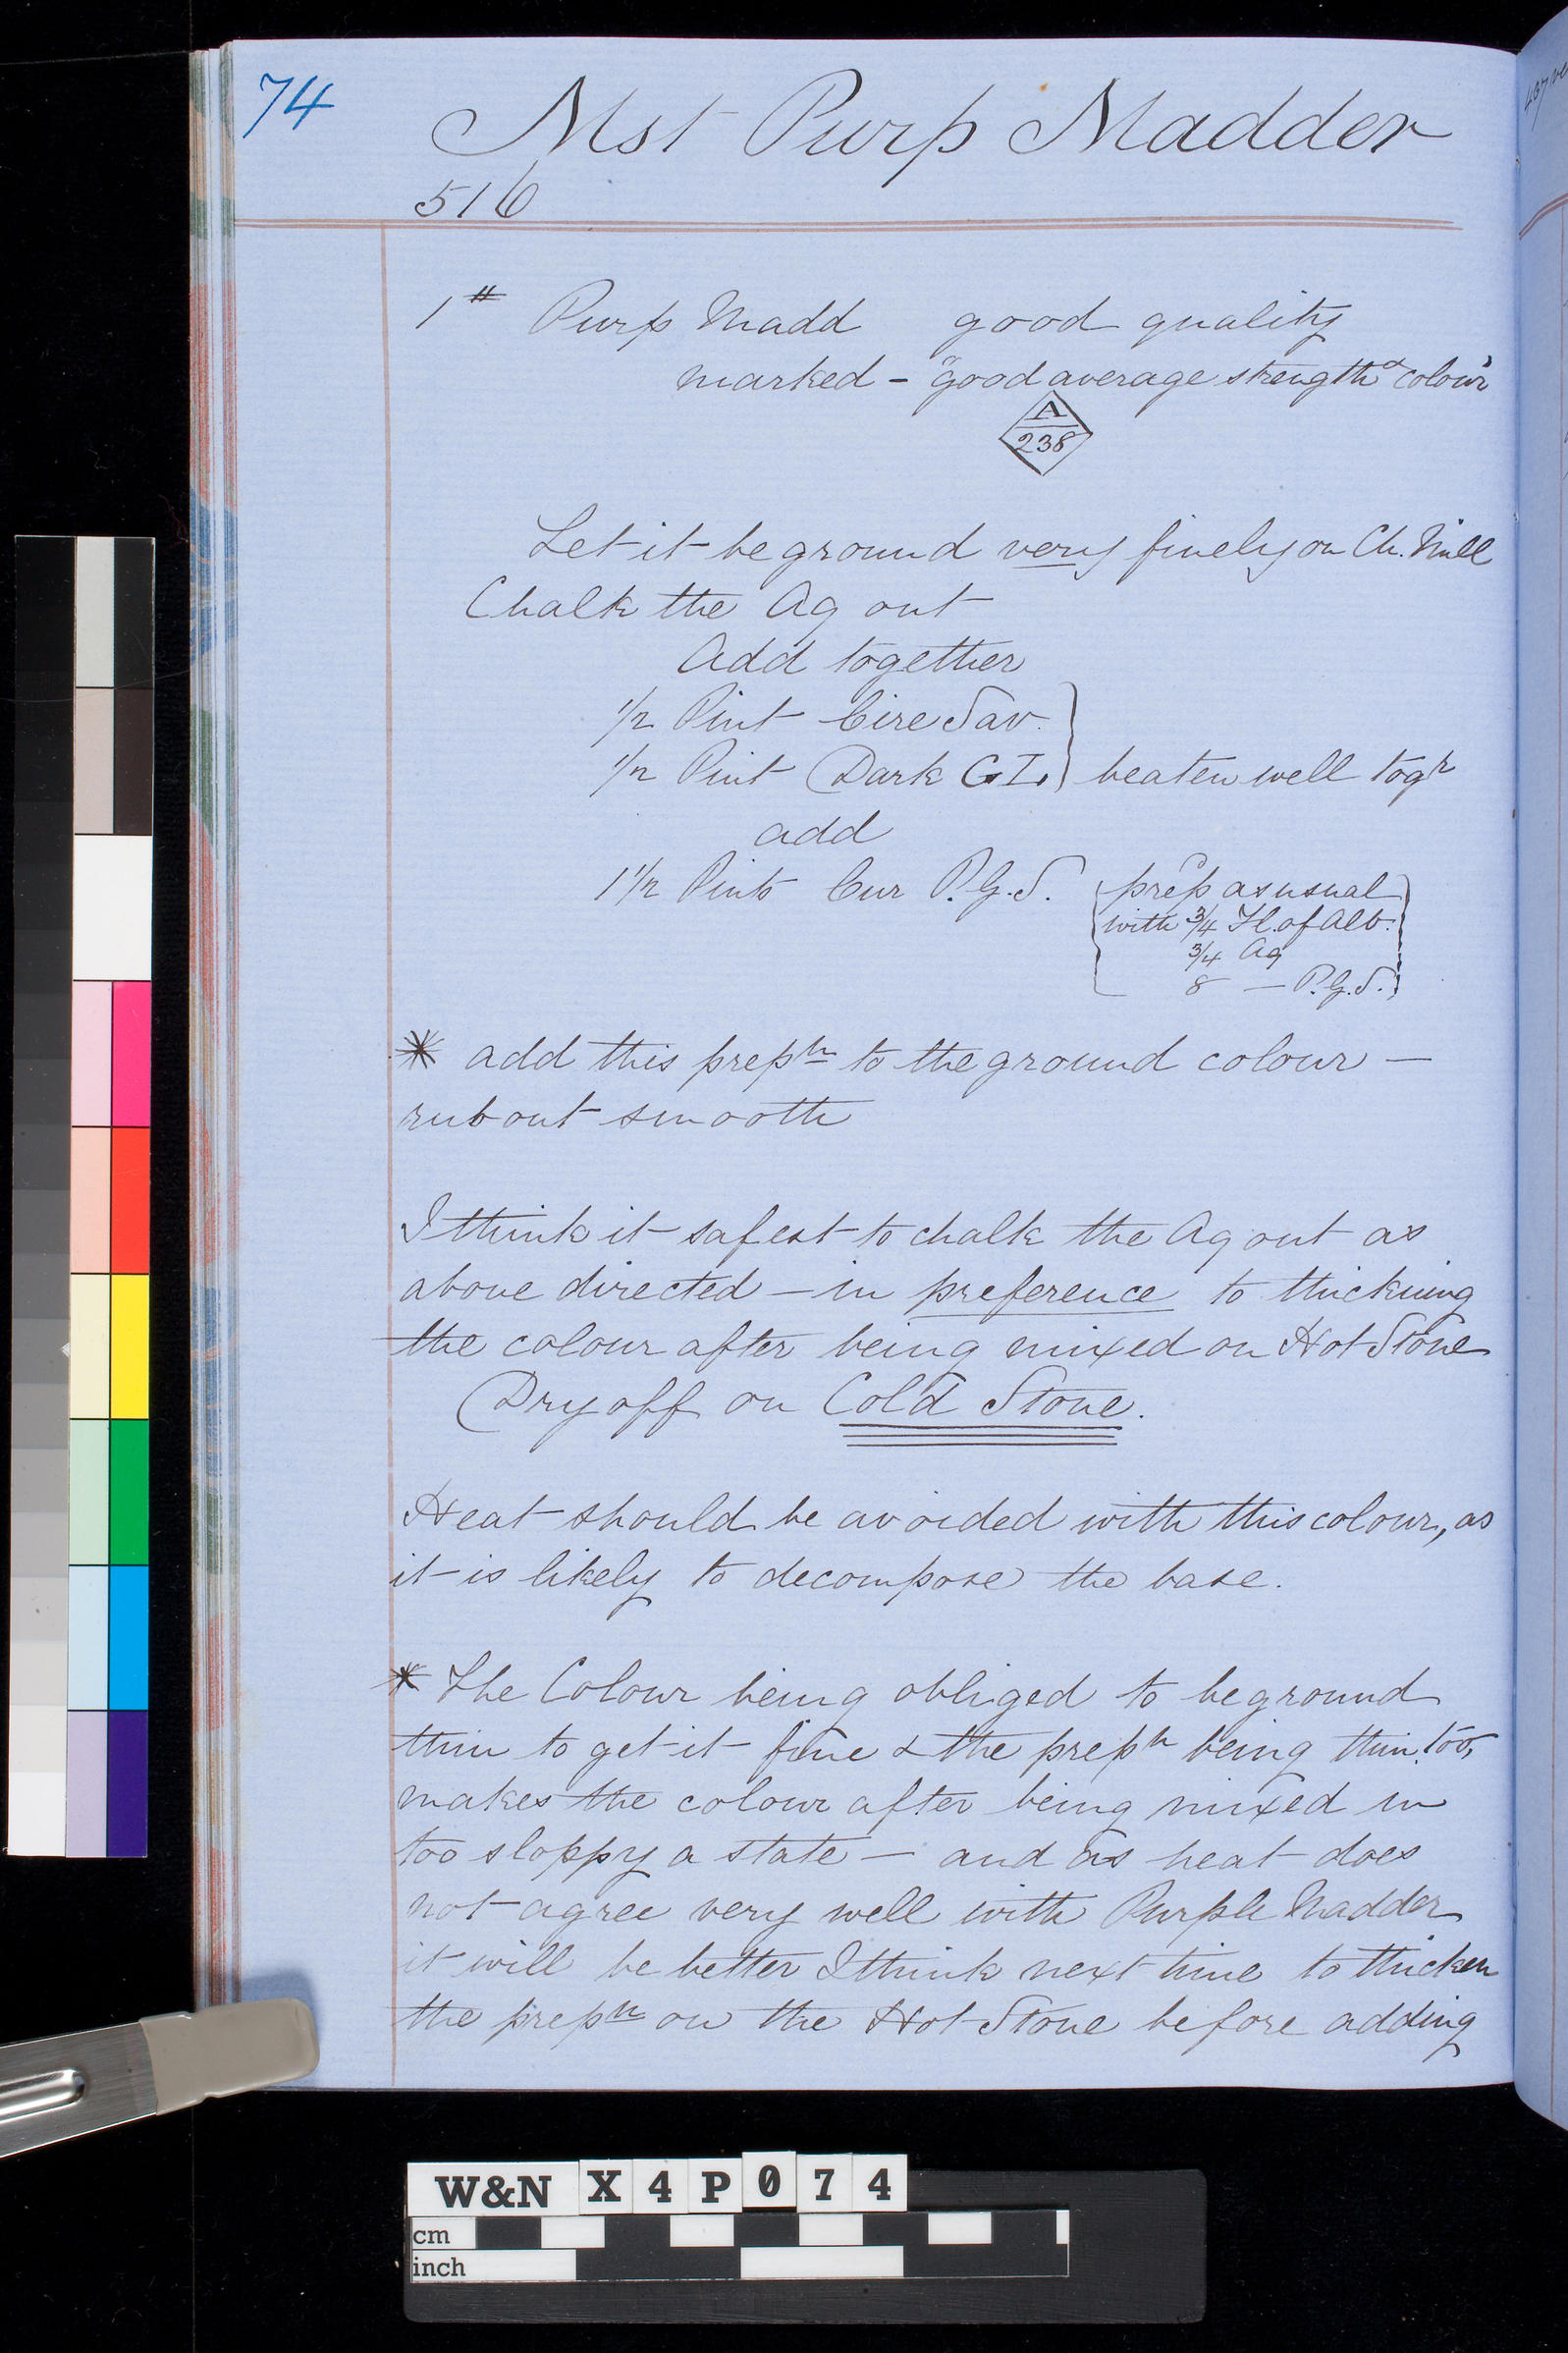 74
Mst Purp Madder
516
1 # Purp Madd good quality
marked - "good average strength & colour"
A
238
Let it be ground very finely on Ch. Mill
Chalk the Aq out
Add together
1/2 Pint Cire Sav.
1/2 Pint Dark G I. } beaten well togr
add
1 1/2 Pints Cur P.G.S. { prep as usual
with 3/4 Fl. of Alb.
3/4 Aq
8 — P.G.S. }
* add this prepn to the ground colour —
rub out smooth
I think it safest to chalk the Aq out as
above directed — in preference to thickning
the colour after being mixed on Hot Stone
Dry off on Cold Stone.
Heat should be avoided with this colour, as
it is likely to decompose the base.
* The Colour being obliged to be ground
thin to get it fine & the prepn being thin too,
makes the colour after being mixed in
too sloppy a state — and as heat does
not agree very well with Purple Madder
it will be better I think next time to thicken
the prepn on the Hot Stone before adding
W&N X4P074
cm
inch